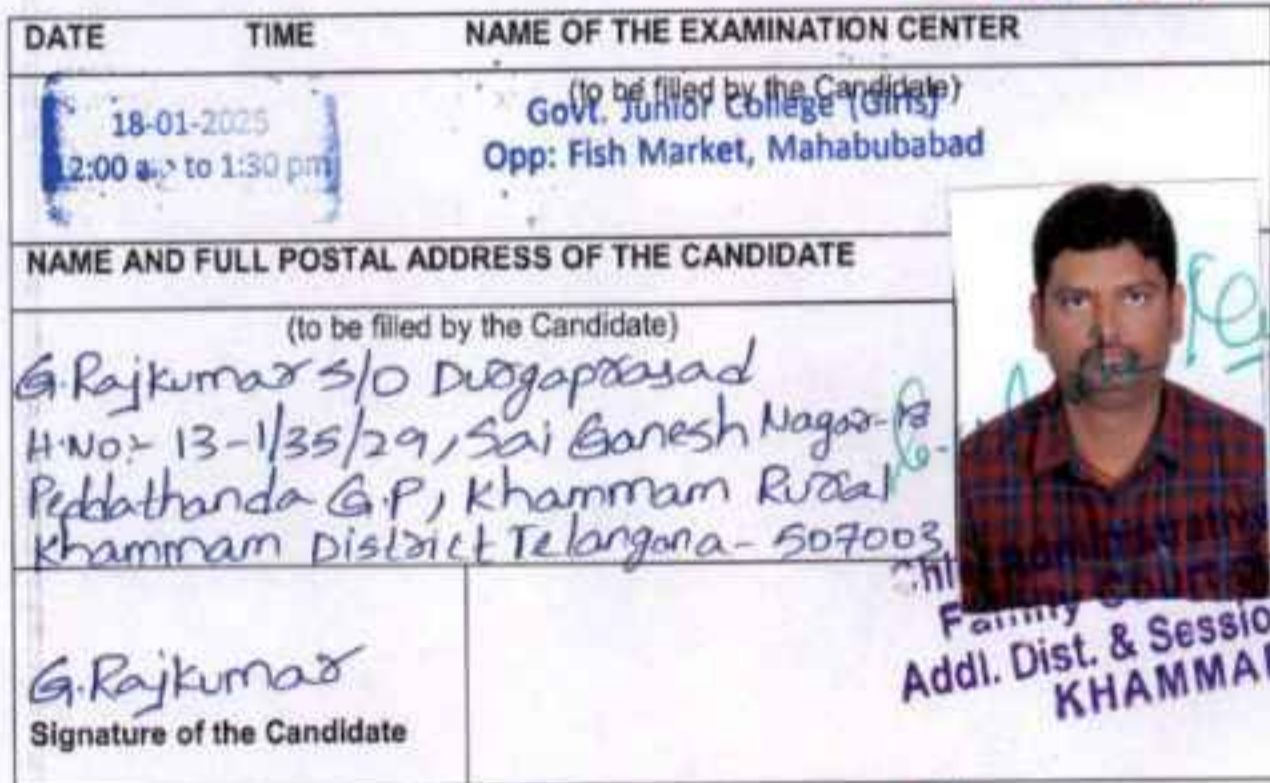 DATE TIME NAME OF THE EXAMINATION CENTER
(to be filled by the Candidate)
18-01-2025
12:00 to 1:30 pm
Govt. Junior College (Girls)
Opp: Fish Market, Mahabubabad
NAME AND FULL POSTAL ADDRESS OF THE CANDIDATE
(to be filled by the Candidate)
G.Rajkumar S/O Durgaprasad
H.No:- 13-1/35/29, Sai Ganesh Nagar-
Peddathanda G.P, Khammam Rural
Khammam District Telangana - 507003
G.Rajkumar
Signature of the Candidate
Family
Addl. Dist. & Sessio
KHAMMAM